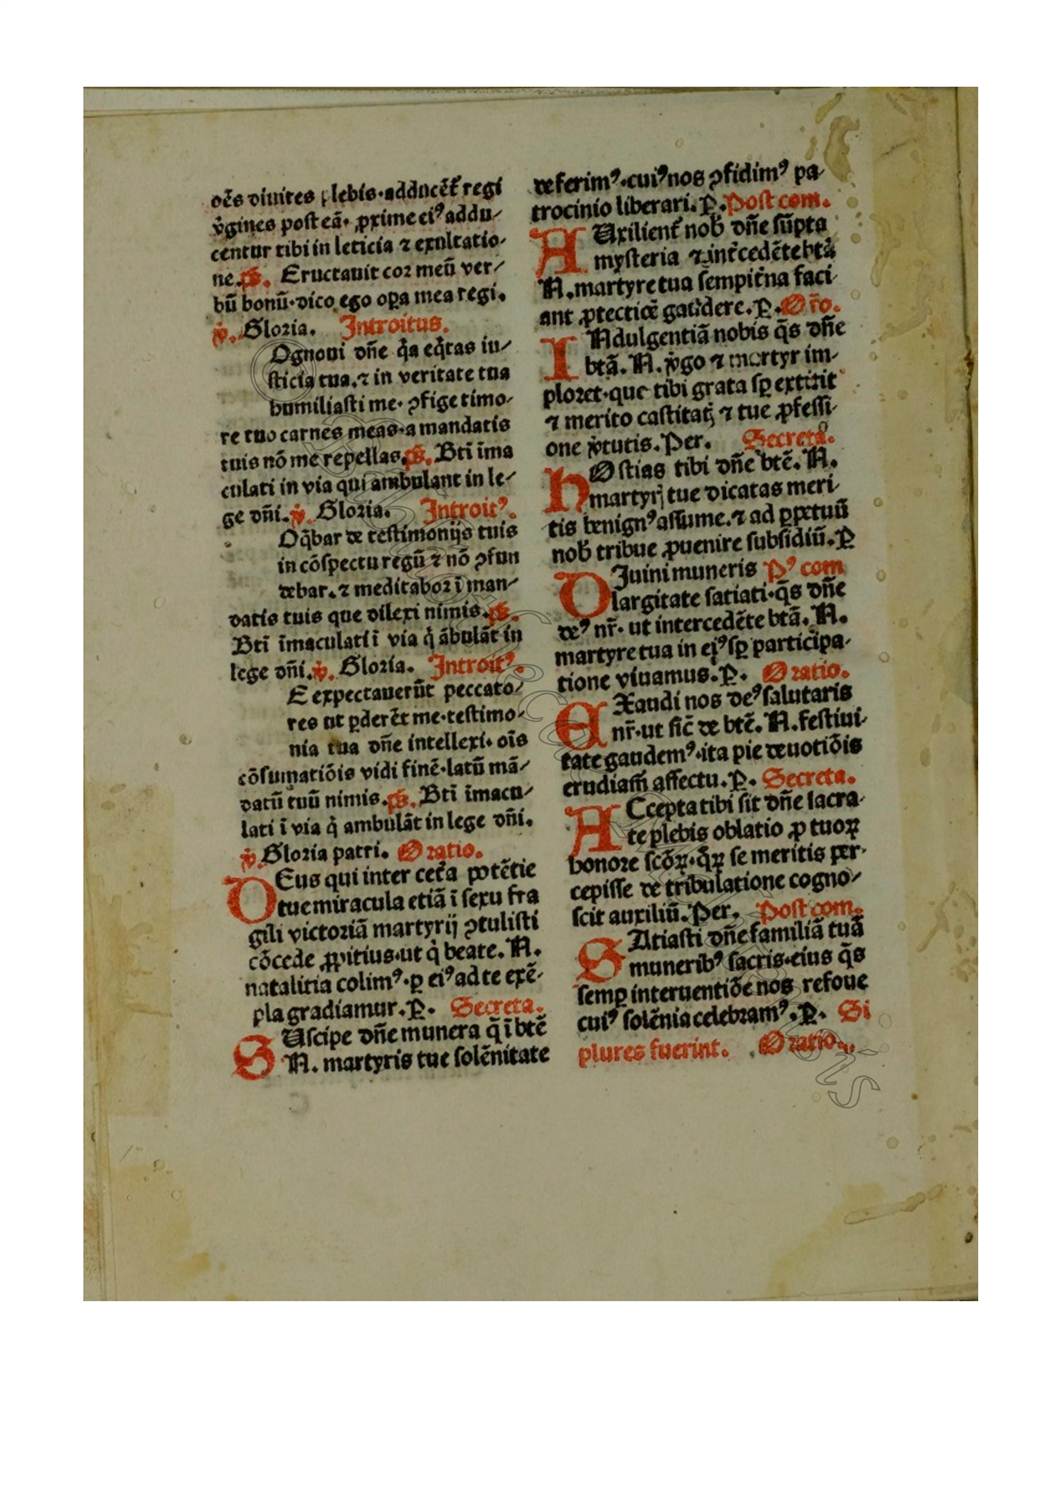 oēs diuites plebis·adducēt regi
v̾gines post eā·ꝓxime ei⁹ addu⸗
centur tibi in leticia ⁊ exultatio⸗
ne.ps. Eructauit cor meū ver⸗
bū bonū·dico ego oꝑa mea regi.
℣. Gloria. Introitus.
Ognoui dn̄e q̄a eq̄tas iu⸗
sticia tua.⁊ in veritate tua
humiliasti me·ꝯfige timo⸗
re tuo carnes meas·a mandatis
tuis nō me repellas.ps. Bt̄i īma
culati in via qui ambulant in le⸗
ge dn̄i.℣. Gloria. Introit⁹.
Oq̄bar de testimonijs tuis
in cōspectu regū ⁊ nō ꝯfun
debar.⁊ meditabor ī man⸗
datis tuis que dilexi nimis.ps.
Bt̄i īmaculati ī via q̇ ābulāt in
lege dn̄i.℣. Gloria. Introit⁹.
E expectauerūt peccato⸗
res ut ꝑderēt me·testimo⸗
nia tua dn̄e intellexi·oīs
cōsumatiōis vidi finē·latū mā⸗
datū tuū nimis.ps. Bt̄i īmacu⸗
lati ī via q̇ ambulāt in lege dn̄i.
℣ Gloria patri. Oratio.
DEus qui inter cet̄a potētie
tue miracula etiā ī sexu fra
gili victoriā martyrij ꝯtulisti
cōcede ꝓpitius·ut q̇ beate.N.
natalitia colim⁹·ꝑ ei⁹ ad te exē⸗
pla gradiamur.P. Secreta.
SUscipe dn̄e munera q̄ ī btē
N. martyris tue solēnitate
deferim⁹·cui⁹ nos ꝯfidim⁹ pa⸗
trocinio liberari.P. Post com.
AUxilient̄ nob̄ dn̄e sūpta
mysteria ⁊ int̄cedēte btā
N.martyre tua sempit̄na faci⸗
ant ꝓtectiōe gaudere.P. Or̄o.
INdulgentiā nobis q̄s dn̄e
btā.N. v̾go ⁊ martyr im⸗
ploret·que tibi grata sꝑ extitit
⁊ merito castitatꝭ ⁊ tue ꝓfessi⸗
one v̾tutis.Per. Secreta.
HOstias tibi dn̄e btē.N.
martyrꝭ tue dicatas meri⸗
tis benign⁹ assume.⁊ ad ꝑpetuū
nob̄ tribue ꝓuenire subsidiū.P
DIuini muneris P⁹ com
largitate satiati·q̄s dn̄e
de⁹ nr̄·ut intercedēte btā.N.
martyre tua in ei⁹ sꝑ participa⸗
tione viuamus.P. Oratio.
EXaudi nos de⁹ salutaris
nr̄·ut sic̄ de btē.N.festiui⸗
tate gaudem⁹·ita pie deuotiōis
erudiam̄ affectu.P. Secreta.
ACcepta tibi sit dn̄e sacra⸗
te plebis oblatio ꝓ tuoꝝ
honore scōꝝ·q̄ꝝ se meritis per⸗
cepisse de tribulatione cogno⸗
scit auxiliū.Per. Post com.
SAtiasti dn̄e familiā tuā
munerib⁹ sacris·eius q̄s
semꝑ interuentiōe nos refoue
cui⁹ solēnia celebram⁹.P. Si
plures fuerint. Oratio.